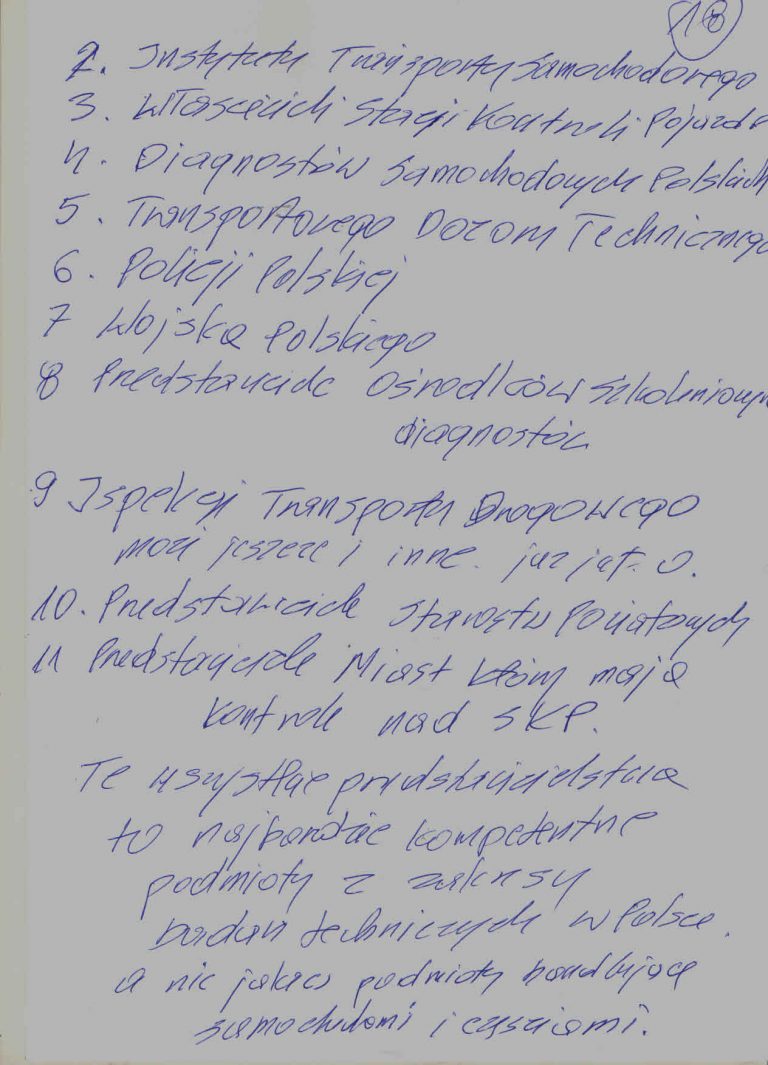 18
2. Instytutu Transportu Samochodowego
3. Właścicieli Stacji Kontroli Pojazdó
4. Diagnostów Samochodowych Polskich
5. Transportowego Dozoru Technicznego
6. Policji Polskiej
7 Wojska Polskiego
8 Predstawiciele Ośrodków Szkoleniowych
diagnostów
9 Ispekcji Transportu Drogowego
może jeszcze i inne.
10. Predstawiciele Starostw Powiatowych
11 Predstawiciele Miast który mają
kontrole nad SKP.
Te wszystkie predstawicielstwa
to najbardzie kompetentne
podmioty z zakresu
badań technicznych w Polsce.
a nie jakieś podmioty handlujące
samochodami i częściami.